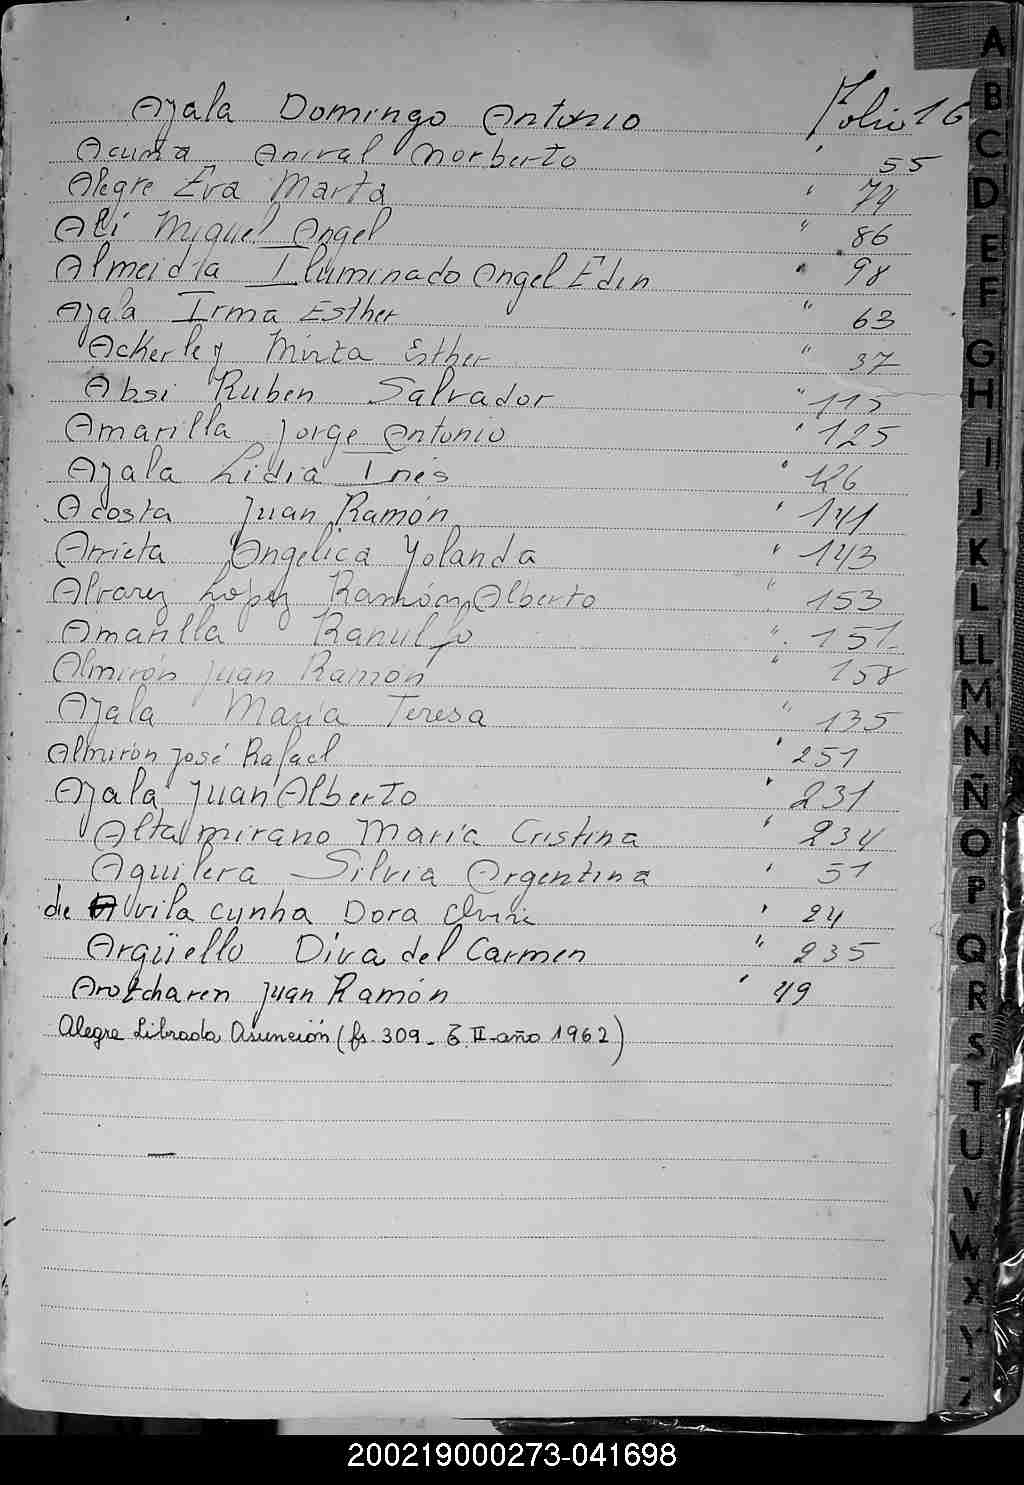 Ayala Domingo Antonio Folio 16
Acuña Anival Norberto ' 55
Alegre Eva Marta ' 74
Ali Miguel Angel " 86
Almeida Iluminado Angel Edin " 98
Ayala Irma Esther " 63
Ackerley Mirta Esther " 37
Absi Ruben Salvador " 115
Amarilla Jorge Antonio " 125
Ayala Lidia Inés " 126
Acosta Juan Ramón ' 141
Arrieta Angelica Yolanda " 143
Alvarez Lopez Ramón Alberto " 153
Amarilla Ranulfo " 151
Almirón Juan Ramón " 158
Ayala María Teresa " 135
Almirón José Rafael ' 251
Ayala Juan Alberto ' 231
Altamirano María Cristina ' 234
Aguilera Silvia Argentina ' 51
de Avila Cunha Dora ' 24
Argüello Diva del Carmen " 235
Arotcharen Juan Ramón ' 49
Alegre Librada Asunción (fs. 309 - T. II - año 1962)
A
B
C
D
E
F
G
H
I
J
K
L
LL
M
N
Ñ
O
P
Q
R
S
T
U
V
W
X
Y
Z
200219000273-041698